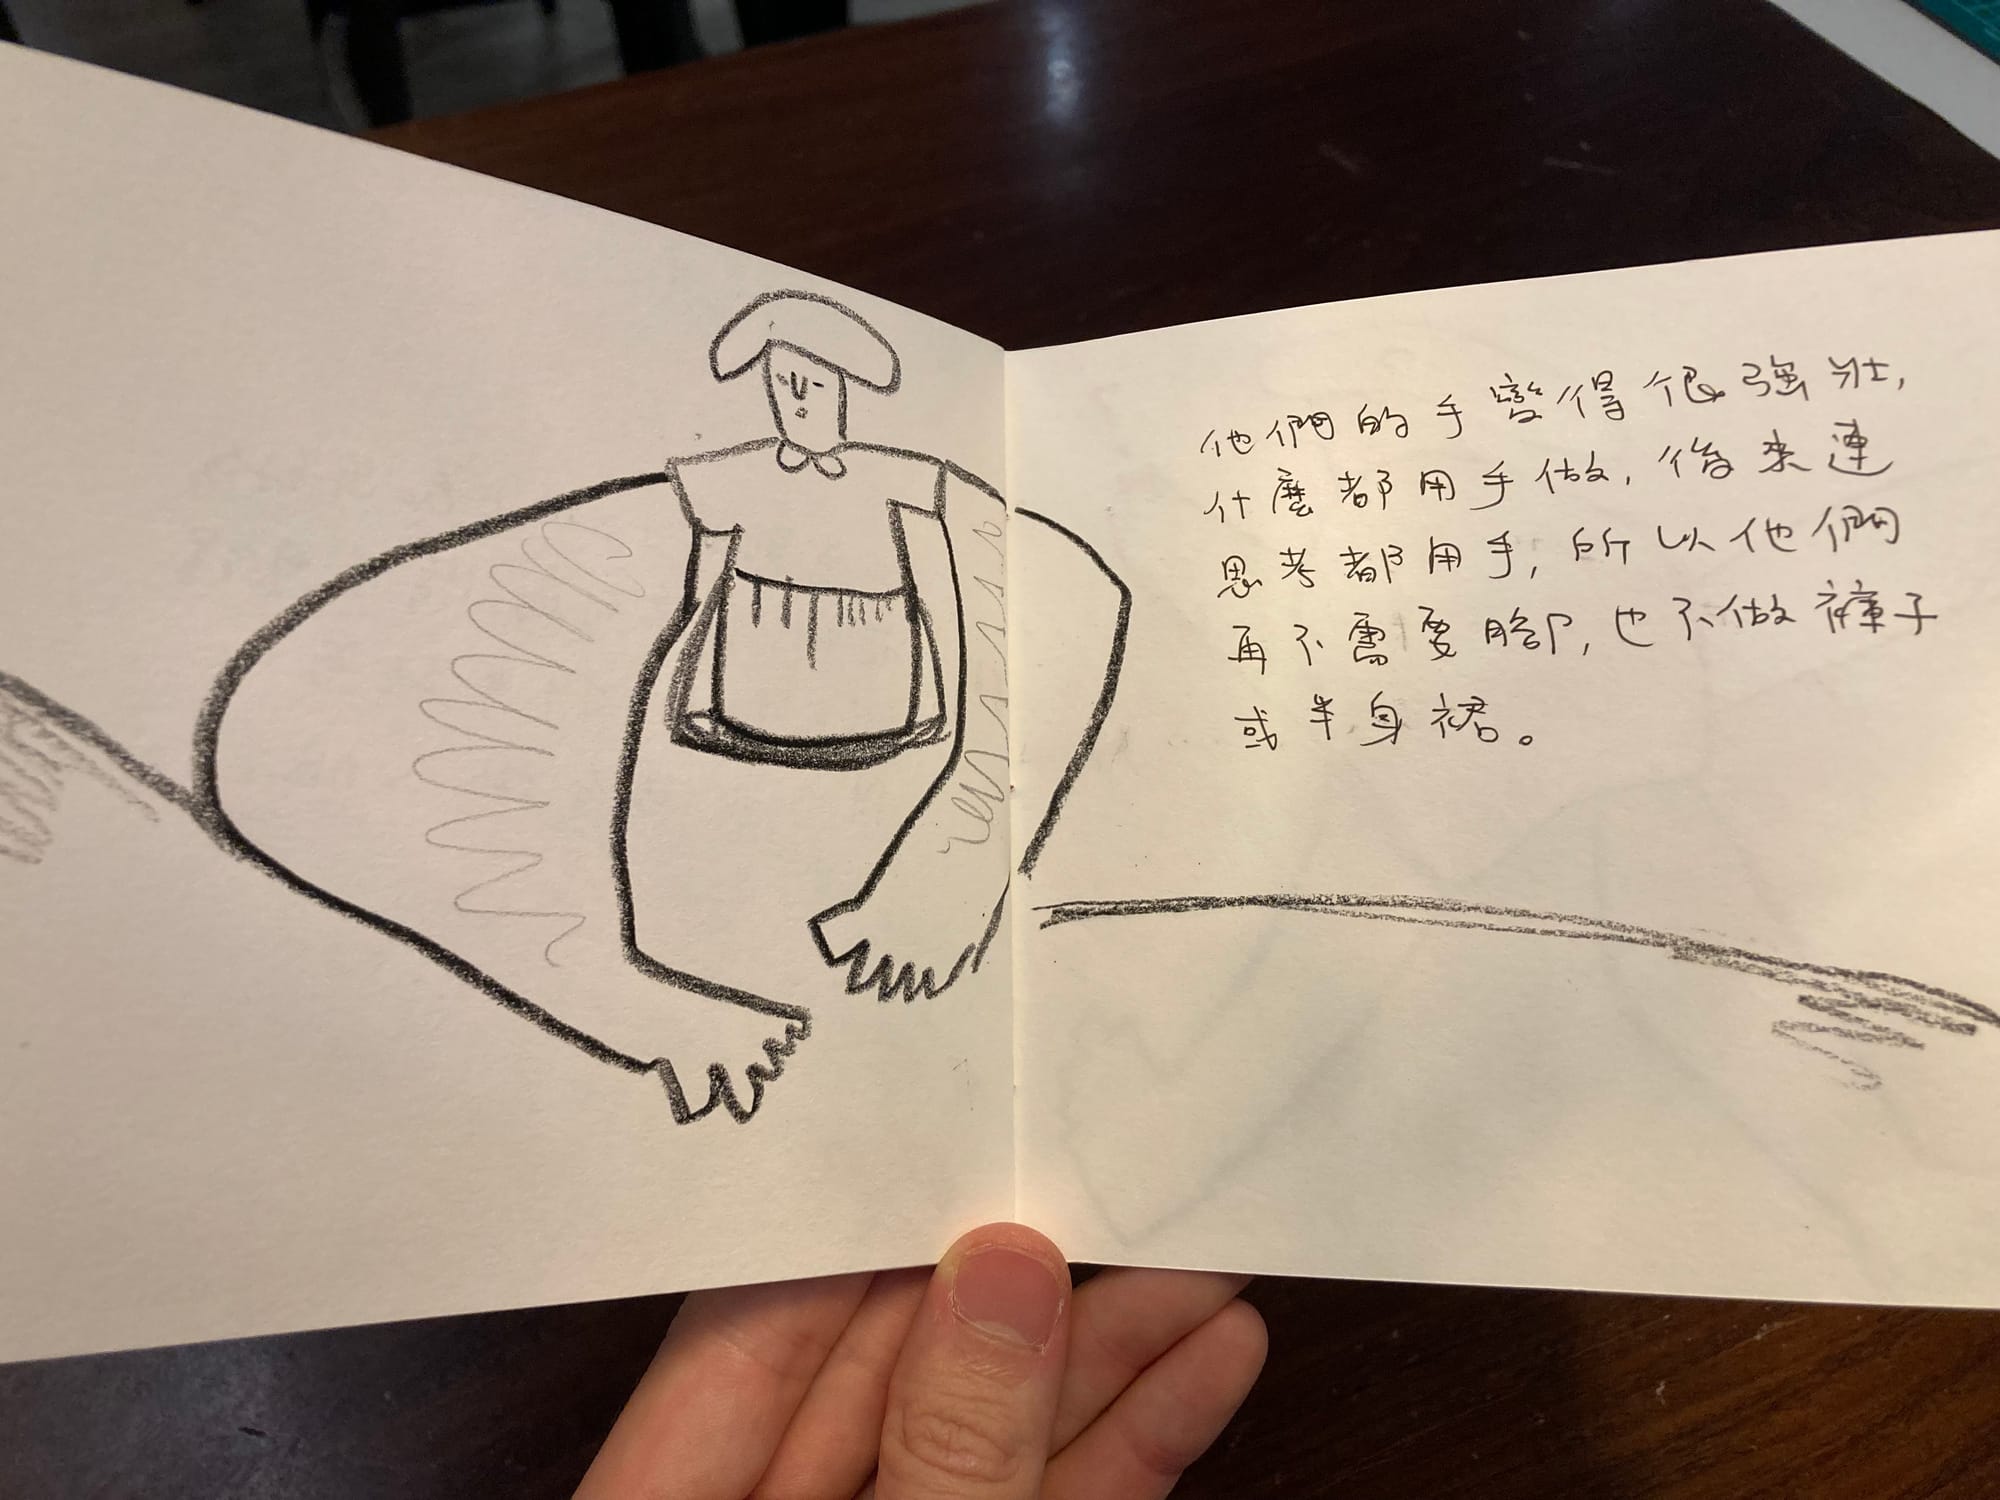 他們的手變得很強壯,
什麼都用手做,後來連
思考都用手,所以他們
再不需要腳,也不做褲子
或半身裙。